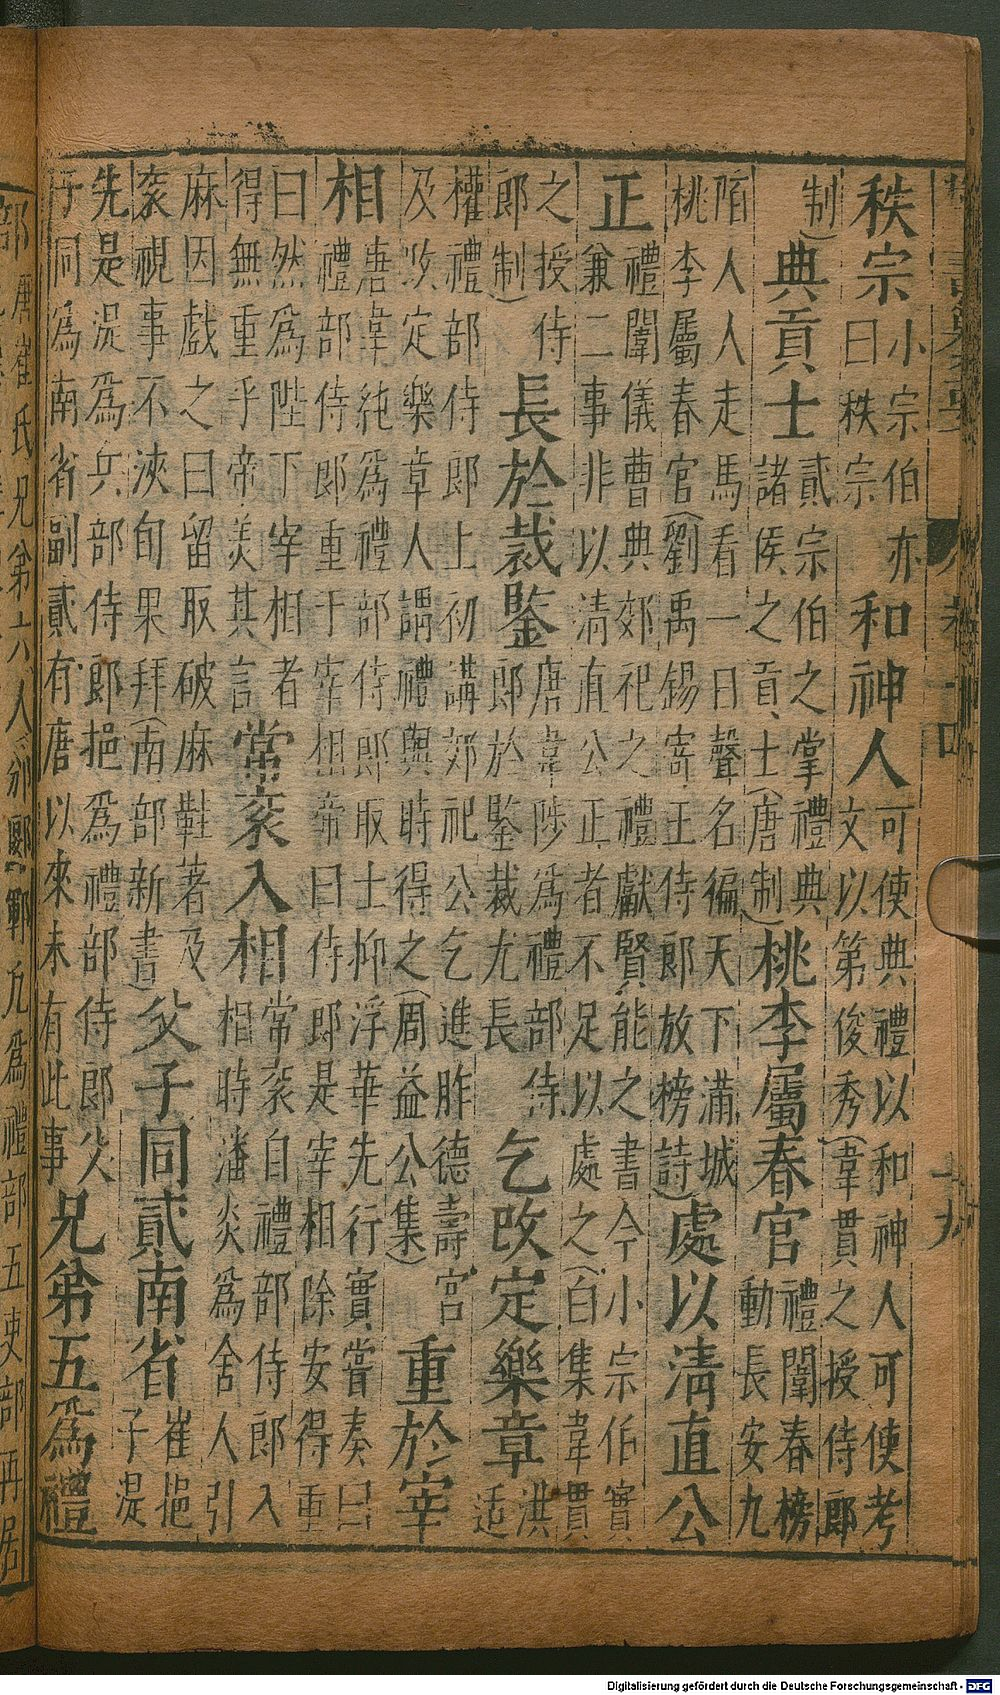 卷十四
十九
秩宗小宗伯亦
曰秩宗和神人可使典禮以和神人可使考
文以第俊秀(韋貫之授侍郎
制)典貢士貳宗伯之掌禮典
諸侯之貢士(唐制)桃李屬春官禮闈春榜
動長安九
陌人人走馬看一日聲名徧天下滿城
桃李屬春官(劉禹錫寄王侍郎放榜詩)處以清直公
正禮闈儀曹典郊祀之禮獻賢能之書今小宗伯實
兼二事非以清直公正者不足以處之(白集韋貫
之授侍
郎制)長於裁鑒唐韋陟為禮部侍
郎於鑒裁尤長乞改定樂章洪
适
權禮部侍郎上初講郊祀公乞進胙德壽宮
及改定樂章人謂禮與時得之(周益公集)重於宰
相唐韋純為禮部侍郎取士抑浮華先行實嘗奏曰
禮部侍郎重于宰相帝曰侍郎是宰相除安得重
曰然為陛下宰相者
得無重乎帝美其言常袞入相常袞自禮部侍郎入
相時潘炎為舍人引
麻因戲之曰留取破麻鞋著及
袞視事不浹旬果拜(南部新書)父子同貳南省崔挹
子湜
先是湜為兵部侍郎挹為禮部侍郎父
子同為南省副貳有唐以來未有此事兄弟五為禮
部唐崔氏兄弟六人邠郾鄲凡為禮部五吏部再居
Digitalisierung gefördert durch die Deutsche Forschungsgemeinschaft - DFG